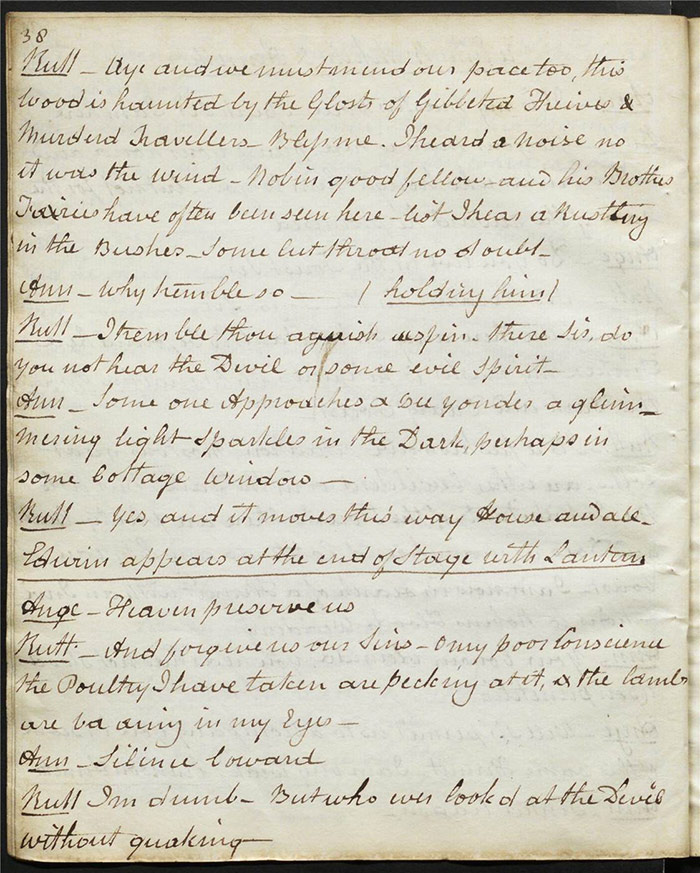 38
Rutt – Aye and we must mend our pace too, this
Wood is haunted by the Glosts of Gibbeted Theives &
Murderd Travellers – Bless me. I heard a noise no
it was the wind – Robin good fellow – and his Brother
Fairies have often been seen here – list I hear a Rustling
in the Bushes – Some cut throat no doubt –
Ann – Why tremble so — ( holding him )
Rutt – I tremble thou aguish aspin – there Sir, do
you not hear the Devil or some evil Spirit –
Ann – Some one Approaches & See yonder a glim–
mering light Sparkles in the Dark, perhaps in
some Cottage Window —
Rutt – Yes, and it moves this way House and all –
Edwin appears at the end of Stage with Lantarn
Ange – Heaven preserve us
Rutt – And forgive us our Sins – O my poor Conscience
the Poultry I have taken are pecking at it, & the lambs
are ba aing in my Eyes –
Ann – Silince Coward
Rutt I'm dumb – But who ever look'd at the Devil
without quaking —